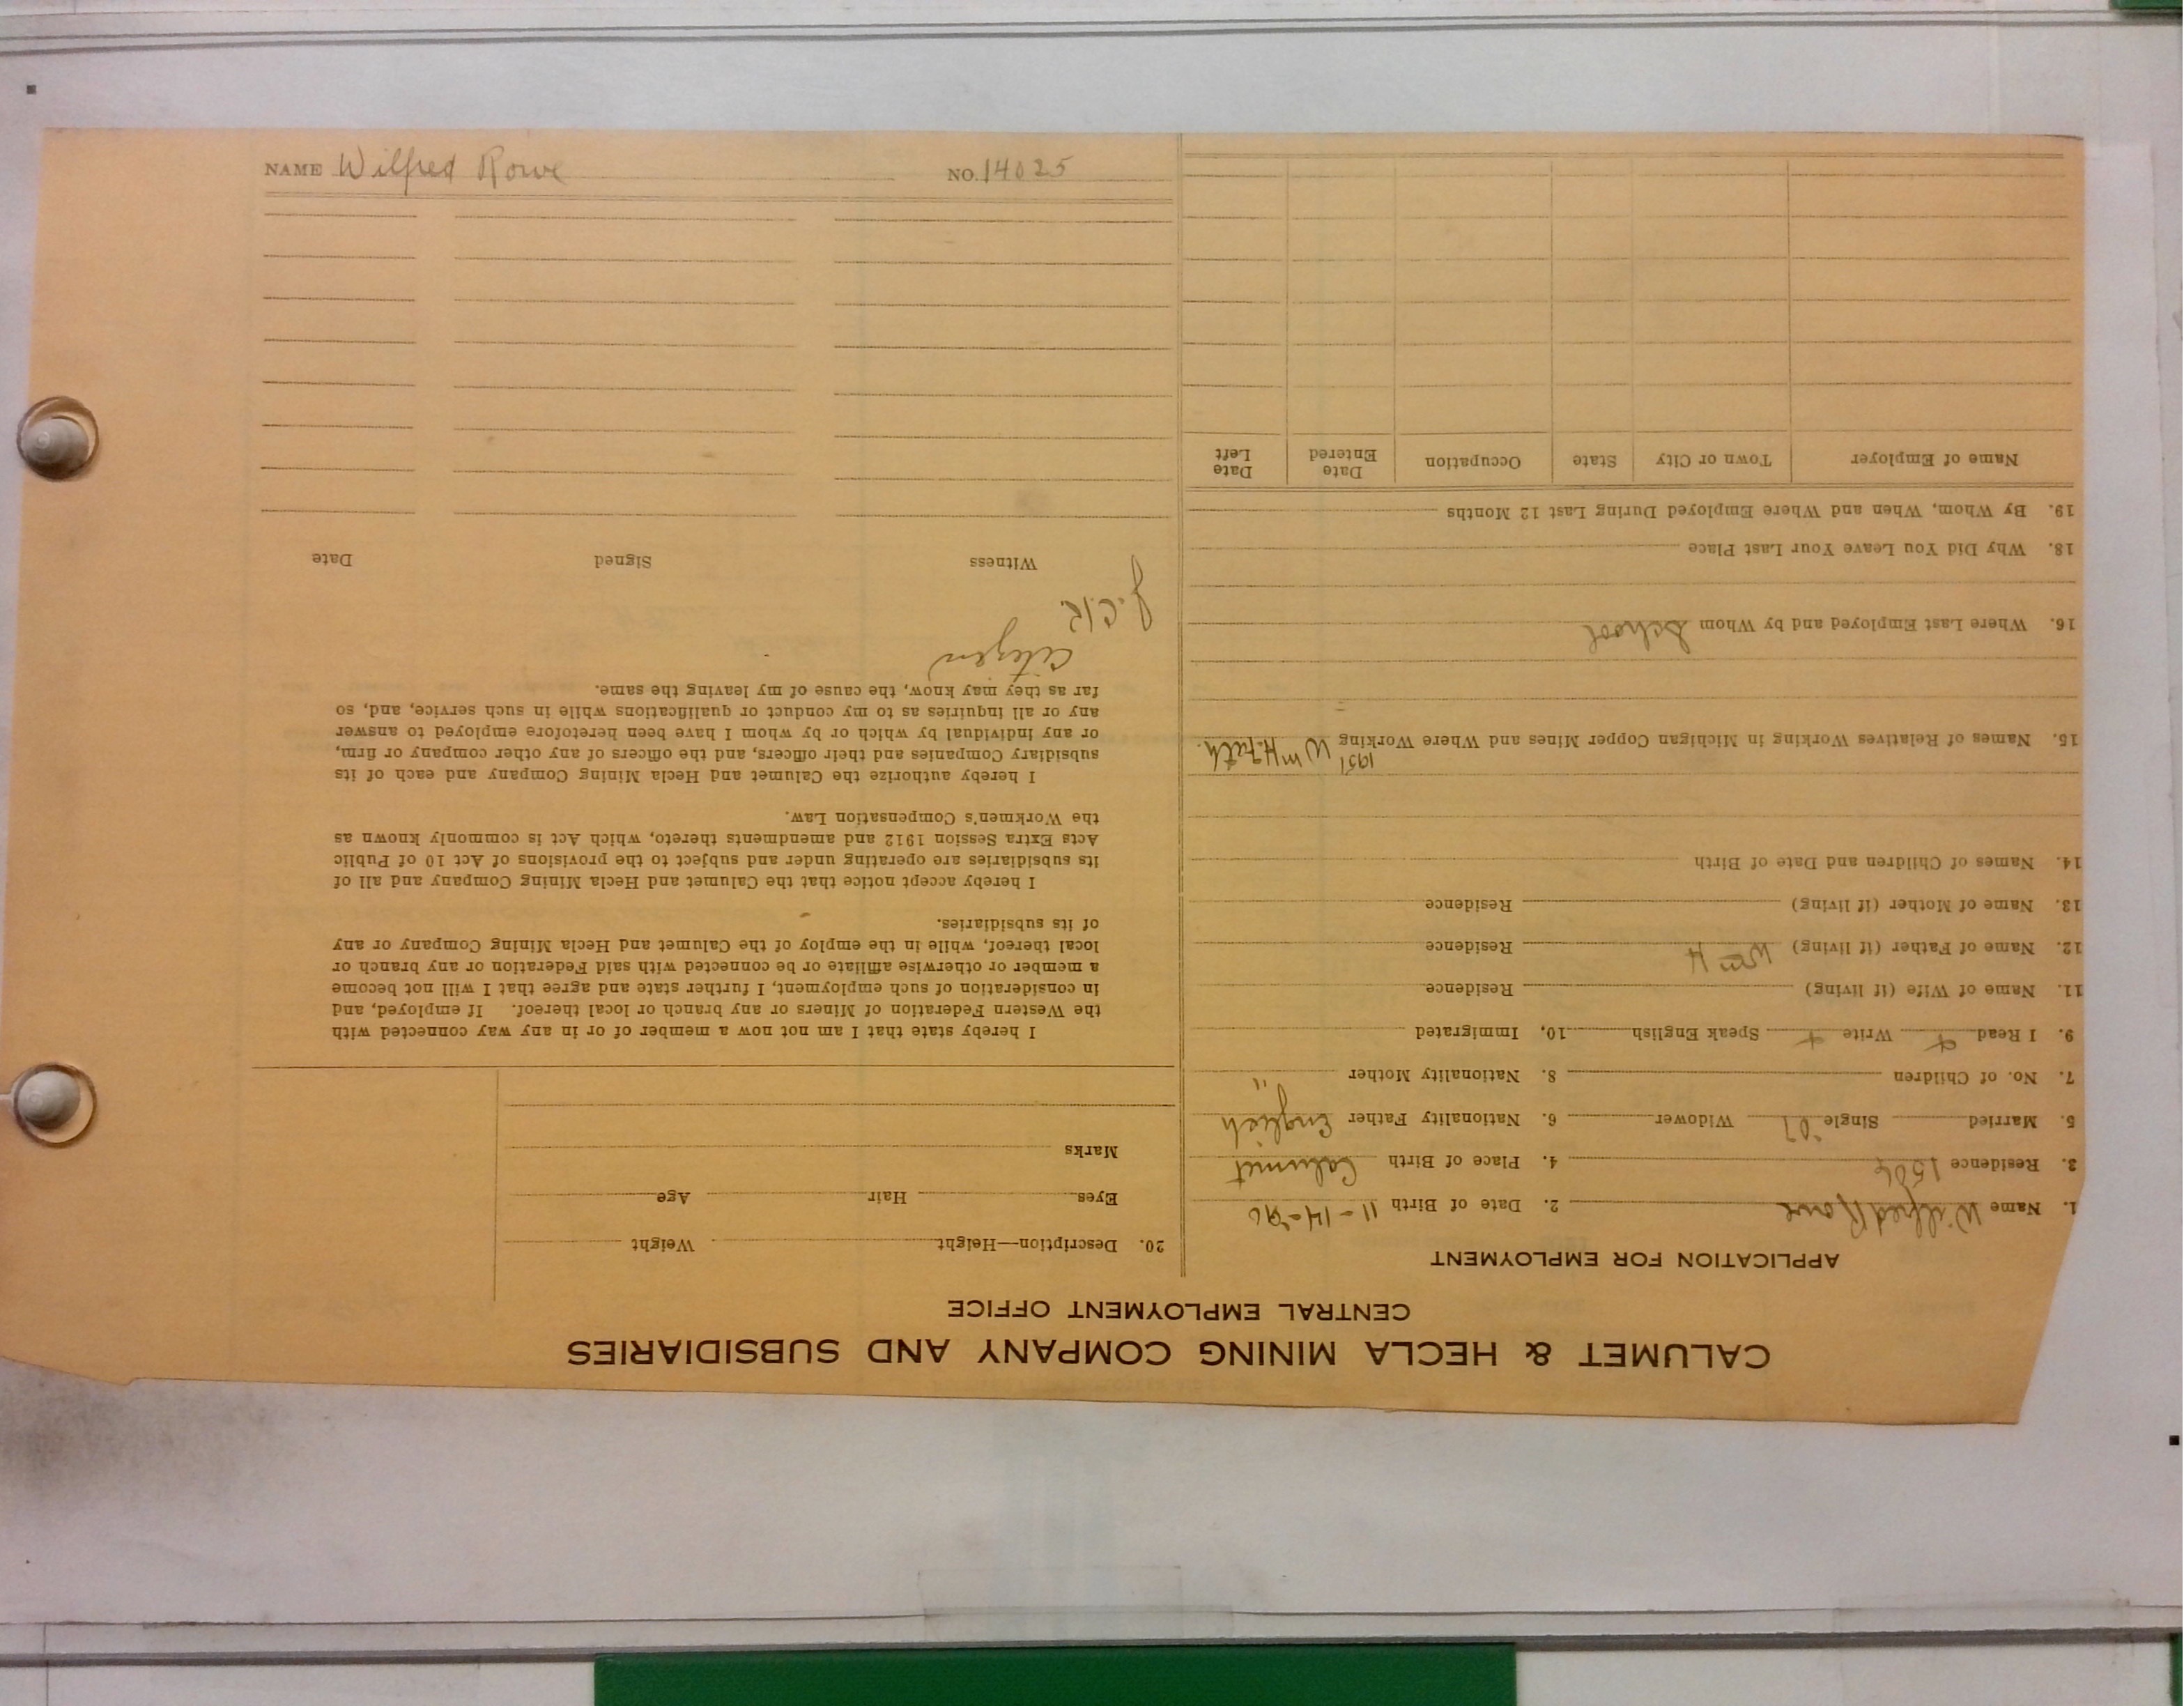 CALUMET & HECLA MINING COMPANY AND SUBSIDIARIES
CENTRAL EMPLOYMENT OFFICE
APPLICATION FOR EMPLOYMENT
1. Name Wilfred Rowe 2. Date of Birth 11-14-
3. Residence 4. Place of Birth Calumet
5. Married Single Widower 6. Nationality Father English
7. No. of Children 8. Nationality Mother "
9. I Read + Write + Speak English 10, Immigrated
11. Name of Wife (if living) Residence
12. Name of Father (if living) Wm H Residence
13. Name of Mother (if living) Residence
14. Names of Children and Date of Birth
15. Names of Relatives Working in Michigan Copper Mines and Where Working Wm H.
1951
16. Where Last Employed and by Whom School
18. Why Did You Leave Your Last Place
19. By Whom, When and Where Employed During Last 12 Months
Name of Employer Town or City State Occupation Date Entered Date Left
20. Description—Height Weight
Eyes Hair Age
Marks
I hereby state that I am not now a member of or in any way connected with
the Western Federation of Miners or any branch or local thereof. If employed, and
in consideration of such employment, I further state and agree that I will not become
a member or otherwise affiliate or be connected with said Federation or any branch or
local thereof, while in the employ of the Calumet and Hecla Mining Company or any
of its subsidiaries.
I hereby accept notice that the Calumet and Hecla Mining Company and all of
its subsidiaries are operating under and subject to the provisions of Act 10 of Public
Acts Extra Session 1912 and amendments thereto, which Act is commonly known as
the Workmen's Compensation Law.
I hereby authorize the Calumet and Hecla Mining Company and each of its
subsidiary Companies and their officers, and the officers of any other company or firm,
or any individual by which or by whom I have been heretofore employed to answer
any or all inquiries as to my conduct or qualifications while in such service, and, so
far as they may know, the cause of my leaving the same.
Citizen
J.C.R.
Witness Signed Date
NAME Wilfred Rowe NO. 14025